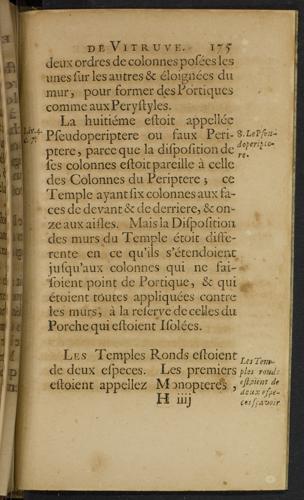 DE VITRUVE. 175
deux ordres de colonnes posées les
unes sur les autres & éloignées du
mur, pour former des Portiques
comme aux Perystyles.
La huitiéme estoit appellée
Pseudoperiptere ou faux Peri-
ptere, parce que la disposition de
ses colonnes estoit pareille à celle
des Colonnes du Periptere; ce
Temple ayant six colonnes aux fa-
ces de devant & de derriere, & on-
ze aux aisles. Mais la Disposition
des murs du Temple étoit diffe-
rente en ce qu'ils s'étendoient
jusqu'aux colonnes qui ne fai-
soient point de Portique, & qui
étoient toutes appliquées contre
les murs, à la reserve de celles du
Porche qui estoient Isolées.
LES Temples Ronds estoient
de deux especes. Les premiers
estoient appellez Monopteres,
H iiij
Liv. 4.
c. 7.
8. Le Pseu-
doperipte-
re.
Les Tem-
ples ronds
estoient de
deux espe-
ces sçavoir